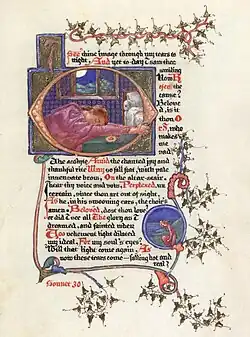 I
See thine image through my tears to
night, And yet to-day I saw thee
smiling
How R
efer the
cause?
Belove
d, is it
thou O
r I, who
makes
me
sad?
The acolyte Amid the chanted joy and
thankful rite May so fall flat, with pale
insensate brow, On the altar-stair. I
hear thy voice and vow, Perplexed, un
certain, since thou art out of sight,
As he, in his swooning ears, the choir's
amen. Beloved, dost thou love?
or did I see all The glory as I
dreamed, and fainted when
Too vehement light dilated
my ideal, For my soul's eyes?
Will that light come again, As
now these tears come - falling hot and
real?
Sonnet 30